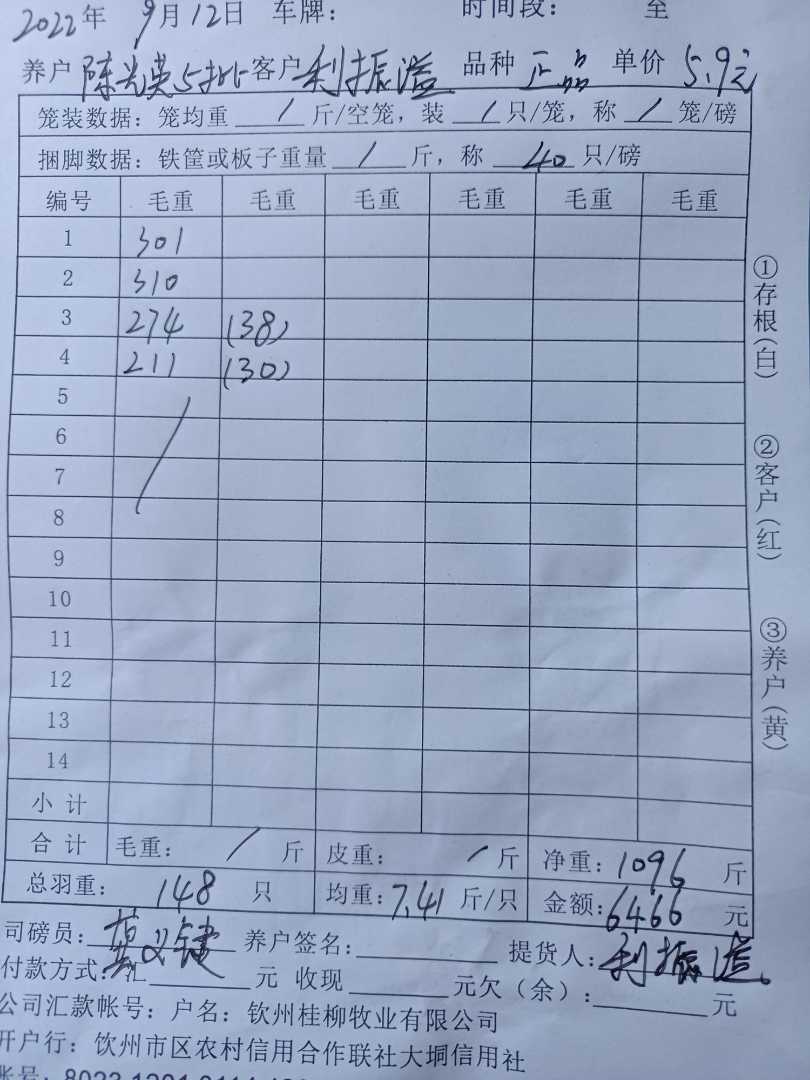 2022年 9月12日 车牌: 时间段: 至
养户 陈光英5批 客户 利振溢 品种 正品 单价 5.9元
笼装数据: 笼均重 / 斤/空笼, 装 / 只/笼, 称 / 笼/磅
捆脚数据: 铁筐或板子重量 / 斤, 称 40 只/磅
编号 毛重 毛重 毛重 毛重 毛重 毛重
1 301
2 310
3 274 (38)
4 211 (30)
5
6
7
8
9
10
11
12
13
14
小计
合计 毛重: / 斤 皮重: / 斤 净重: 1096 斤
总羽重: 148 只 均重: 7.41 斤/只 金额: 6466 元
司磅员: 养户签名: 提货人: 利振溢
付款方式: 汇 元 收现 元欠(余): 元
公司汇款帐号: 户名: 钦州桂柳牧业有限公司
开户行: 钦州市区农村信用合作联社大垌信用社
帐号: 8023 1201 0111
①存根(白)
②客户(红)
③养户(黄)